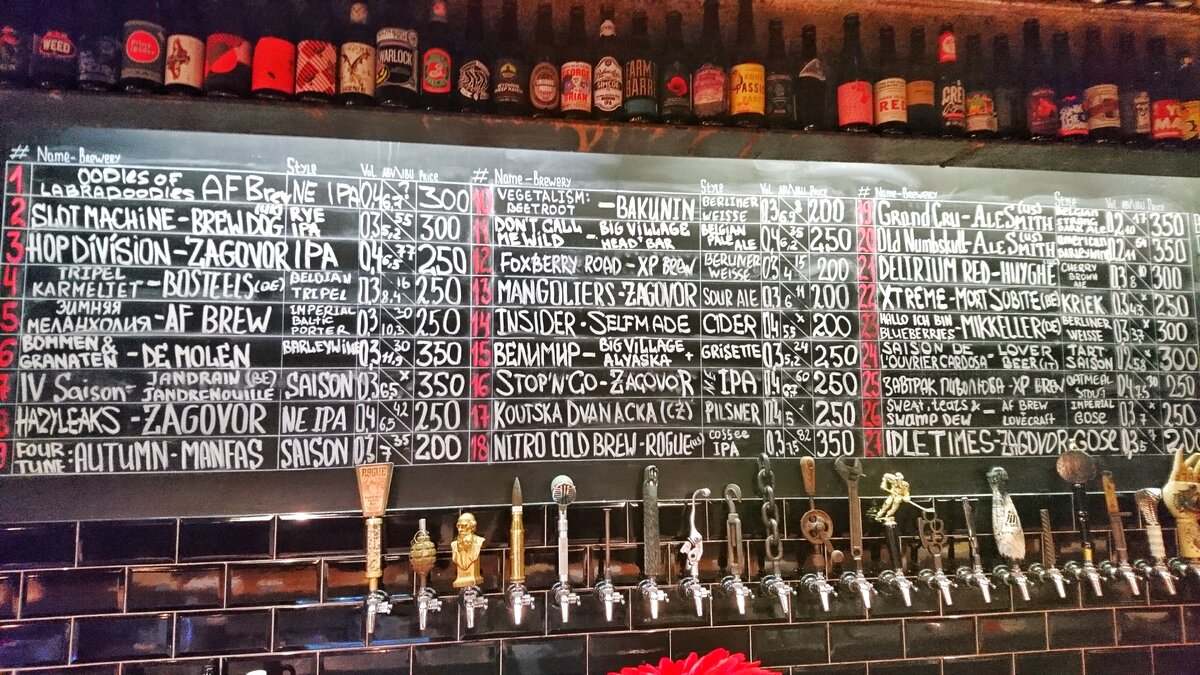 WEED
WARLOCK
GEORGE
BRIAN
SIMCOE
IPA
FARM
DARK
PASSIO
RED
# Name - Brewery Style Vol ABV/IBU Price
1 OODLES OF LABRADOODLES AF Brew NE IPA 0,4 300
2 SLOT MACHINE - BREWDOG (UK) RYE IPA 0,3 5,2 55 300
3 HOP DIVISION - ZAGOVOR IPA 0,4 6,5 77 250
4 TRIPEL KARMELIET - BOSTEELS (DE) BELGIAN TRIPEL 0,3 8,4 16 250
5 ЗИМНЯЯ МЕЛАНХОЛИЯ - AF BREW IMPERIAL BALTIC PORTER 0,3 10,3 30 250
6 BOMMEN & GRANATEN - DE MOLEN BARLEYWINE 0,3 11,9 30 350
7 IV Saison - JANDRAIN JANDRENOUILLE (BE) SAISON 0,3 6,5 x 350
8 HAZYLEAKS - ZAGOVOR NE IPA 0,4 6,5 42 250
9 FOUR TUNE: AUTUMN - MANFAS SAISON 0,3 7 35 200
# Name - Brewery Style Vol ABV/IBU Price
10 VEGETALISM: BEETROOT - BAKUNIN BERLINER WEISSE 0,3 6,9 200
11 DON'T CALL ME WILD - BIG VILLAGE HEAD' BAR BELGIAN PALE ALE 0,4 6,2 35 250
12 FOXBERRY ROAD - XP BREW BERLINER WEISSE 0,3 4 15 200
13 MANGOLIERS - ZAGOVOR SOUR ALE 0,3 6 11 200
14 INSIDER - SELFMADE CIDER 0,4 5,5 x 200
15 ВЕЛИМИР - BIG VILLAGE ALYASKA + GRISETTE 0,3 5,2 24 250
16 STOP'N'GO - ZAGOVOR NE IPA 0,4 6,7 60 250
17 KOUTSKA DVANACKA (CZ) PILSNER 0,4 5 250
18 NITRO COLD BREW - ROGUE (US) COFFEE IPA 0,3 7,5 82 350
# Name - Brewery Style Vol ABV/IBU Price
19 GRAND CRU - ALESMITH (US) BELGIAN DARK ALE 0,2 17 350
20 Old Numbskull - ALESMITH (US) AMERICAN BARLEYWINE 0,2 11 350
21 DELIRIUM RED - HUYGHE CHERRY BROWN ALE 0,3 8 10 300
22 XTREME - MORT SUBITE (BE) KRIEK 0,3 4,3 x 250
23 HALLO ICH BIN BLUEBERRIES - MIKKELLER (DE) BERLINER WEISSE 0,3 300
24 SAISON DE LOUVRIER CARDOSA - LOVER BEER (IT) TART SAISON 0,2 5,8 x 300
25 ЗАВТРАК - XP BREW OATMEAL STOUT 0,4 7,5 30 250
26 SWEAT, TEARS & SWAMP DEW - AF BREW LOVECRAFT IMPERIAL GOSE 0,3 7 x 250
27 IDLE TIMES - ZAGOVOR GOSE 0,3
ROGUE